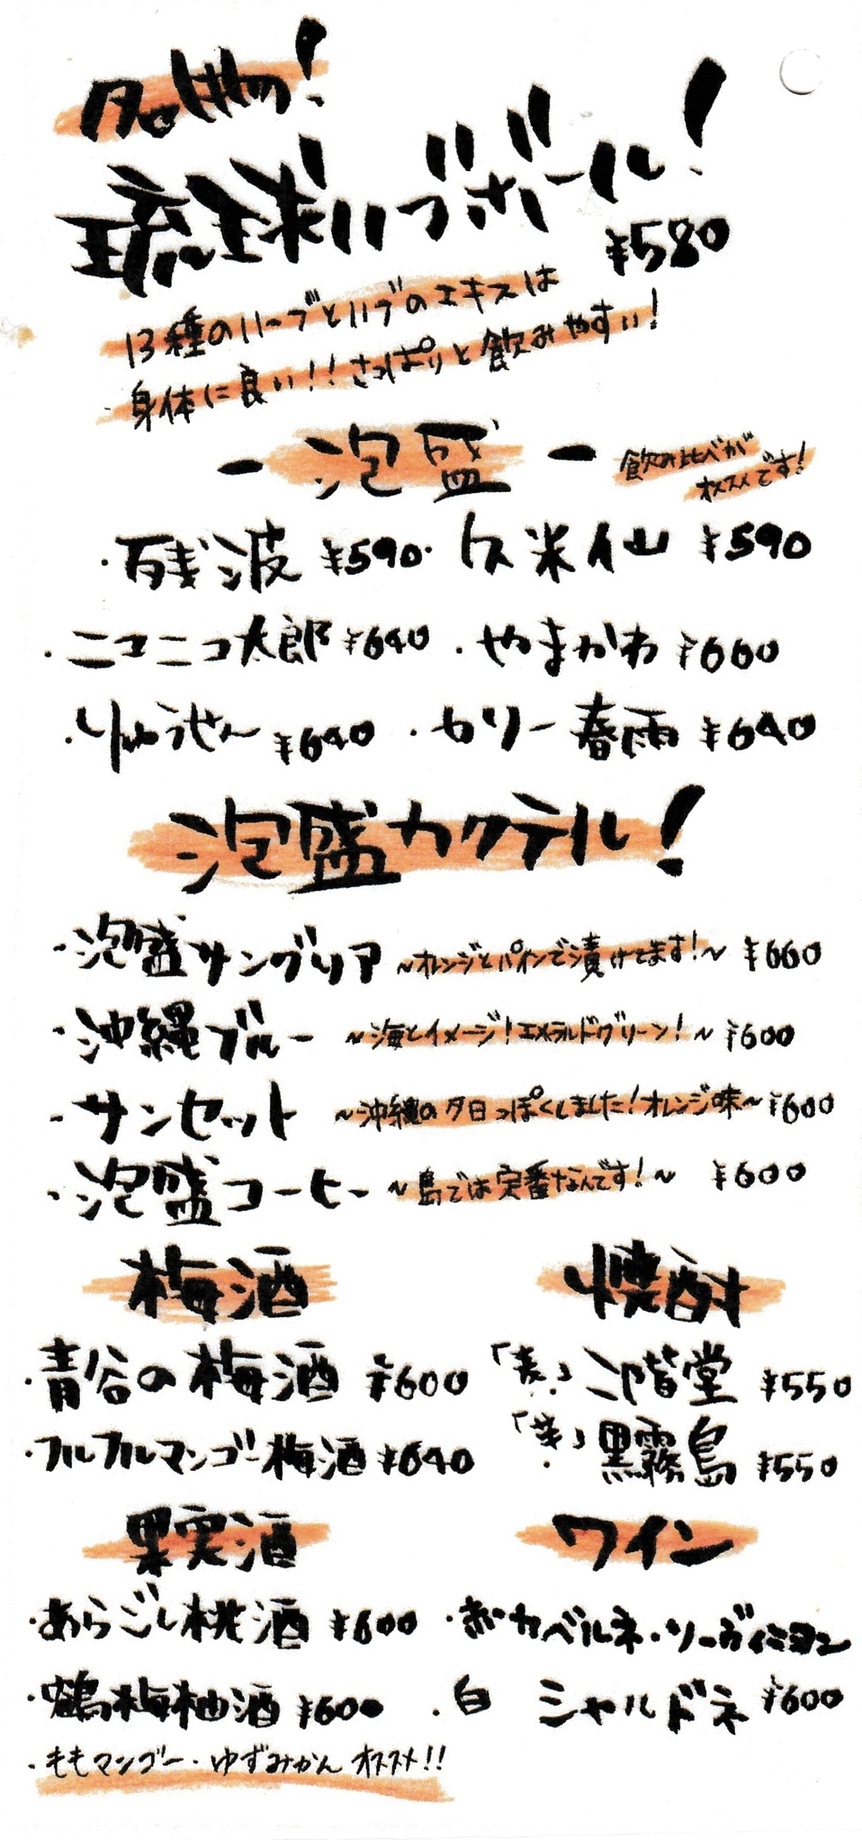 名物!
琉球ハブボール!
¥580
13種のハーブとハブのエキスは
身体に良い!!さっぱりと飲みやすい!
ー泡盛ー
飲み比べが
オススメです!
・残波 ¥590・久米仙 ¥590
・ニコニコ太郎 ¥640・やまかわ ¥660
・りゅうせん ¥640・カリー春雨 ¥640
泡盛カクテル!
・泡盛サングリア ~オレンジとパインで漬けてます!~ ¥660
・沖縄ブルー ~海をイメージ!エメラルドグリーン!~ ¥600
・サンセット ~沖縄の夕日っぽくしました!オレンジ味~ ¥600
・泡盛コーヒー ~島では定番なんです!~ ¥600
梅酒 焼酎
・青谷の梅酒 ¥600 「麦」二階堂 ¥550
・フルフルマンゴー梅酒 ¥640 「芋」黒霧島 ¥550
果実酒 ワイン
・あらごし桃酒 ¥600 ・赤 カベルネ・ソーヴィニヨン
・鶴梅柚酒 ¥600 ・白 シャルドネ ¥600
・ももマンゴー・ゆずみかん オススメ!!